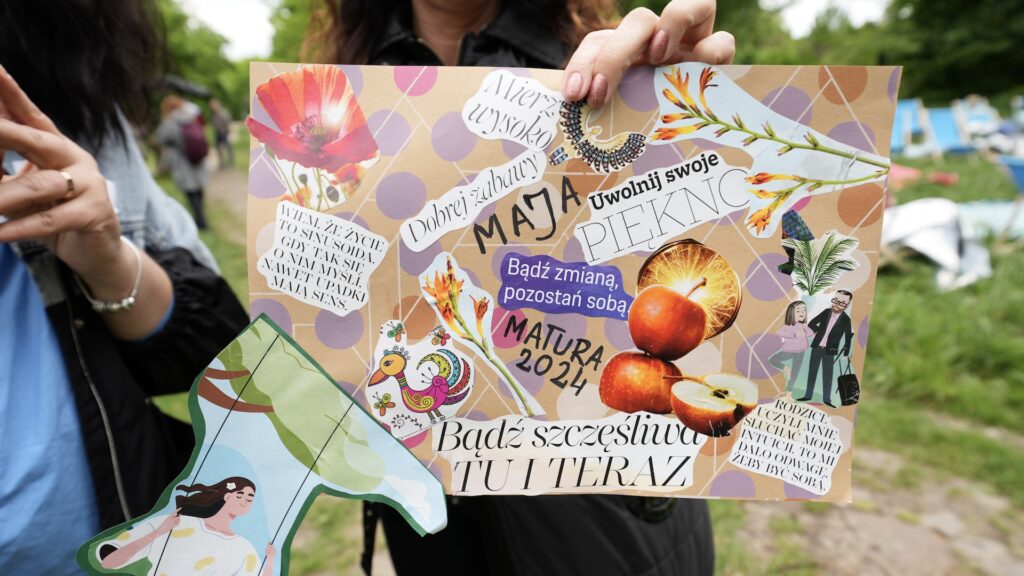 Mierz
wysoko
Dobrej zabawy
MAJA
Uwolnij swoje
PIĘKNO
WIEM, ŻE ŻYCIE
TO SINUSOIDA.
GDY TAK SIĘ
O NIM MYŚLI,
NAWET UPADKI
MAJĄ SENS.
Bądź zmianą,
pozostań sobą
MATURA
2024
Bądź szczęśliwa
TU I TERAZ
RODZICE
UCZYLI MNIE
SŁUCHAĆ MOJEJ
INTUICJI. TO MI
DAŁO ODWAGĘ,
ŻEBY BYĆ
SOBĄ.